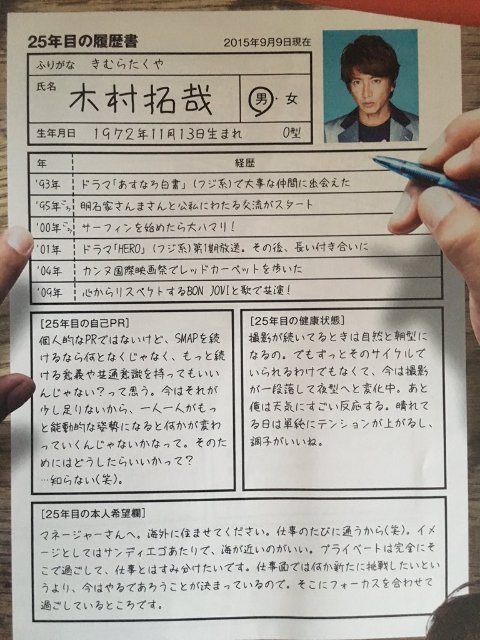 25年目の履歴書
2015年9月9日現在
ふりがな きむらたくや
氏名 木村拓哉 男・女
生年月日 1972年11月13日生まれ O型
年 経歴
'93年 ドラマ「あすなろ白書」(フジ系)で大事な仲間に出会えた
'95年ごろ 明石家さんまさんと公私にわたる交流がスタート
'00年ごろ サーフィンを始めたら大ハマり！
'01年 ドラマ「HERO」(フジ系)第1期放送。その後、長い付き合いに
'04年 カンヌ国際映画祭でレッドカーペットを歩いた
'09年 心からリスペクトするBON JOVIと歌で共演！
[25年目の自己PR]
個人的なPRではないけど、SMAPを続
けるなら何となくじゃなく、もっと続
ける意義や共通意識を持ってもいい
んじゃない？って思う。今はそれが
少し足りないから、一人一人がもっ
と能動的な姿勢になると何かが変わ
っていくんじゃないかなって。そのた
めにはどうしたらいいかって？
…知らない(笑)。
[25年目の健康状態]
撮影が続いてるときは自然と朝型に
なるの。でもずっとそのサイクルでい
られるわけでもなくて、今は撮影
が一段落して夜型へと変化中。あと
俺は天気にすごい反応する。晴れて
る日は単純にテンションが上がるし、
調子がいいね。
[25年目の本人希望欄]
マネージャーさんへ。海外に住ませてください。仕事のたびに通うから(笑)。イメ
ージとしてはサンディエゴあたりで、海が近いのがいい。プライベートは完全にそ
こで過ごして、仕事とはすみ分けたいです。仕事面では何か新たに挑戦したいとい
うより、今はやるであろうことが決まっているので。そこにフォーカスを合わせて
過ごしているところです。